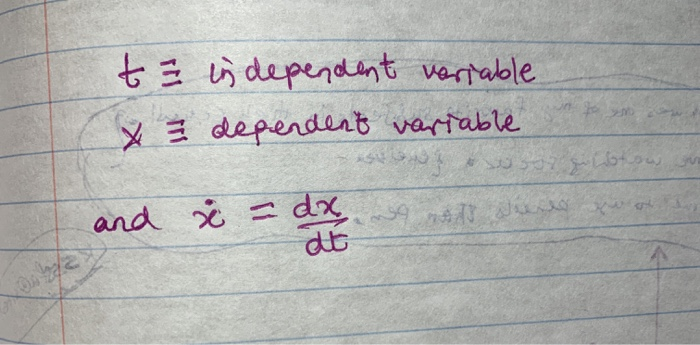 t ≡ independent variable
x ≡ dependent variable
and ẋ = dx/dt